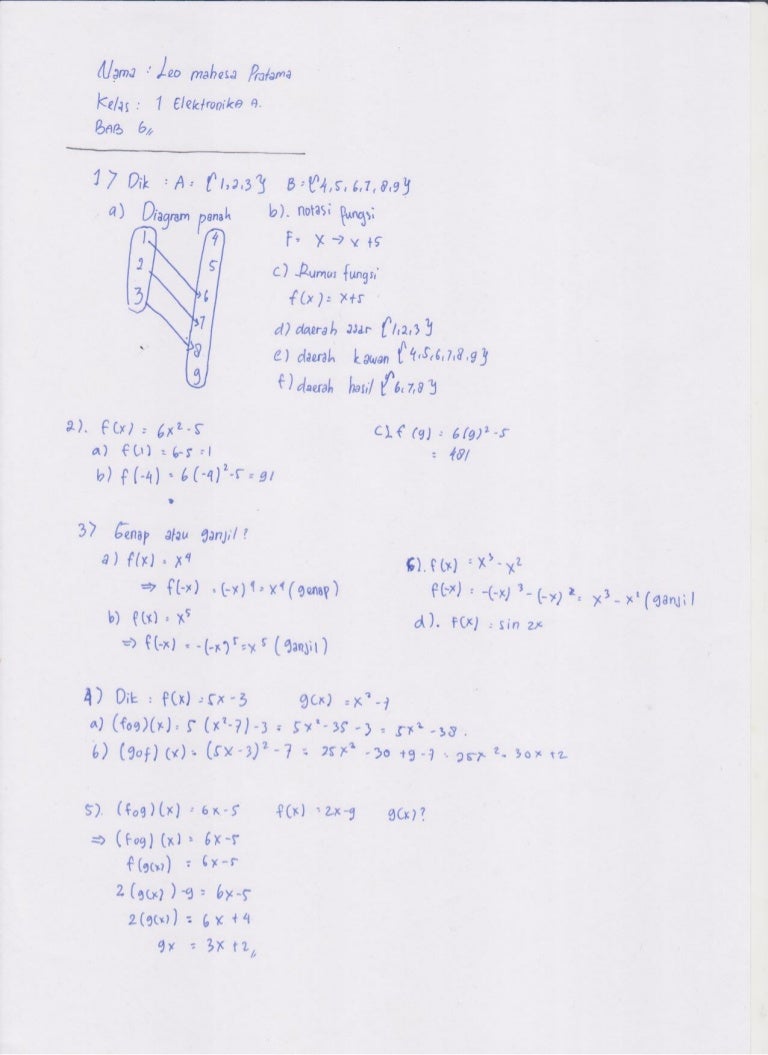 Nama : Leo mahesa Pratama
Kelas : 1 Elektronika A.
BAB 6,,
1) Dik : A = {1,2,3} B = {4,5,6,7,8,9}
a) Diagram panah
1
2
3
4
5
6
7
8
9
b). notasi fungsi
F = x → x +5
c) Rumus fungsi
f(x) = x+5
d) daerah asar {1,2,3}
e) daerah kawan {4,5,6,7,8,9}
f) daerah hasil {6,7,8}
2). f(x) = 6x²-5
a) f(1) = 6-5 = 1
b) f(-4) = 6(-4)²-5 = 91
c). f(9) = 6(9)²-5
= 481
3) Genap atau ganjil?
a) f(x) = x⁴
⇒ f(-x) = (-x)⁴ = x⁴ (genap)
b) f(x) = x⁵
⇒ f(-x) = -(-x)⁵ = x⁵ (ganjil)
f(x) = x³ - x²
f(-x) = -(-x)³ - (-x)² = x³ - x² (ganjil
d). f(x) = sin 2x
4) Dik : f(x) = 5x-3 g(x) = x²-7
a) (fog)(x) = 5(x²-7)-3 = 5x²-35-3 = 5x²-38.
b) (gof)(x) = (5x-3)²-7 = 25x²-30+9-7 = 25x²-30x+2
5). (fog)(x) = 6x-5 f(x) = 2x-9 g(x)?
⇒ (fog)(x) = 6x-5
f(g(x)) = 6x-5
2(g(x))-9 = 6x-5
2(g(x)) = 6x+4
gx = 3x+2,,